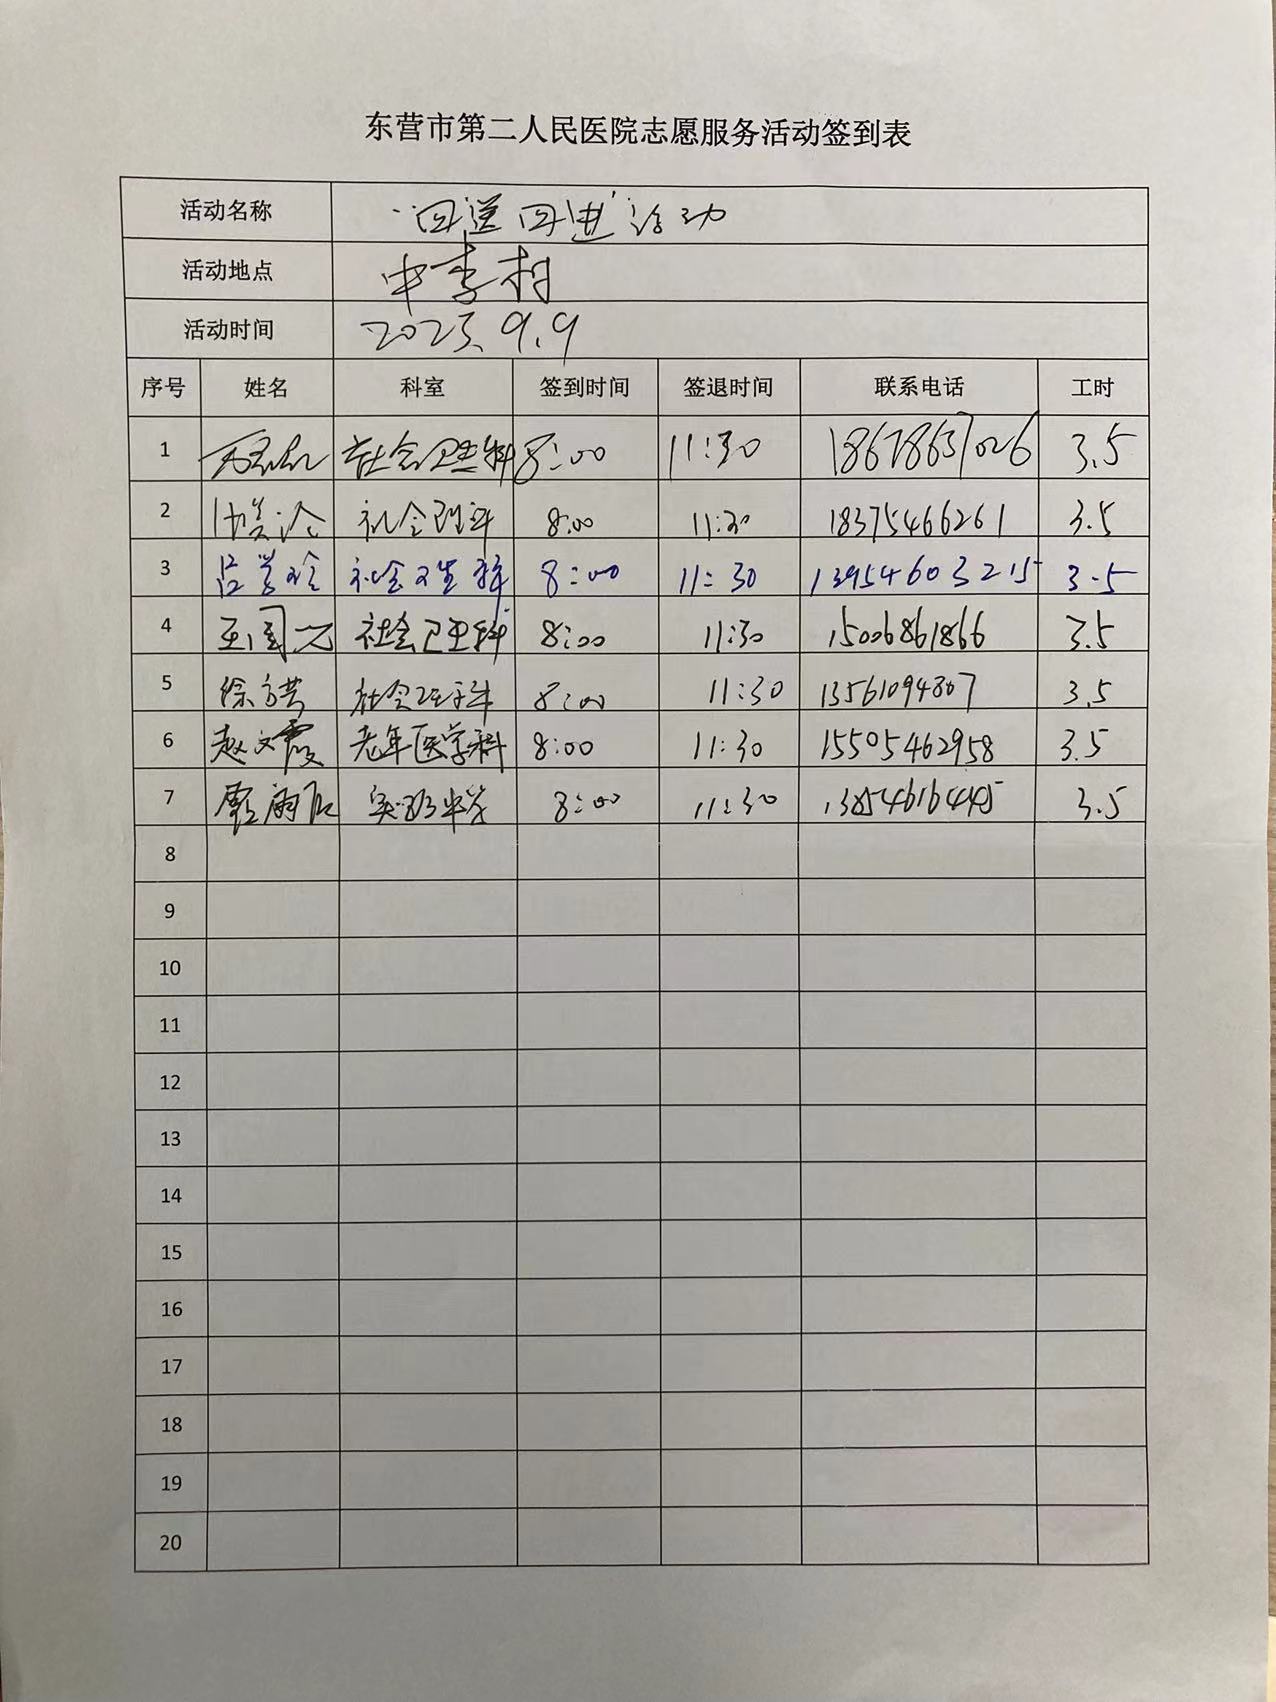 东营市第二人民医院志愿服务活动签到表
活动名称 “四送四进”活动
活动地点 中李村
活动时间 2023.9.9
序号 姓名 科室 签到时间 签退时间 联系电话 工时
1 社会卫生科 8:00 11:30 18678637026 3.5
2 社会卫生科 8:00 11:30 18375466261 3.5
3 吕学玲 社会卫生科 8:00 11:30 13954603215 3.5
4 王国元 社会卫生科 8:00 11:30 15006861866 3.5
5 徐方芸 社会卫生科 8:00 11:30 13561094807 3.5
6 赵文霞 老年医学科 8:00 11:30 15505462958 3.5
7 实验中学 8:00 11:30 13854616445 3.5
8
9
10
11
12
13
14
15
16
17
18
19
20